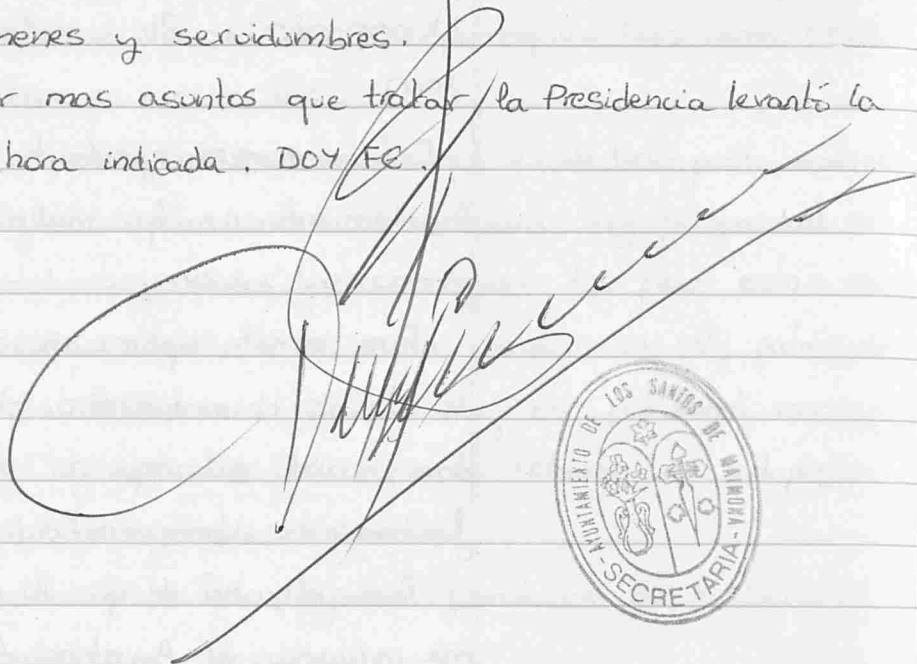 menes y servidumbres.
r mas asuntos que tratar, la Presidencia levantó la
hora indicada. DOY FE.
AYUNTAMIENTO DE LOS SANTOS DE MAIMONA
-SECRETARIA-